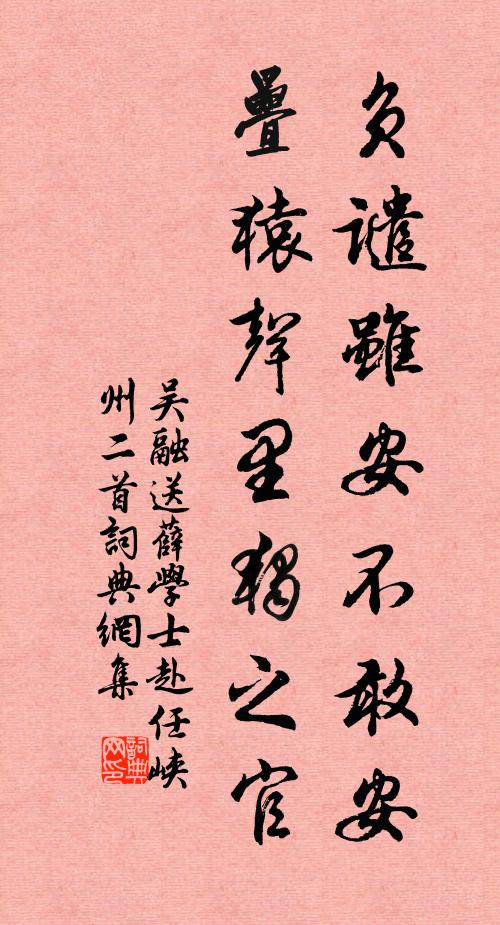 负譴雖安不敢安
疊猿聲里獨之官
吴融送薛學士赴任峡
州二首詞典網集
詞典网印